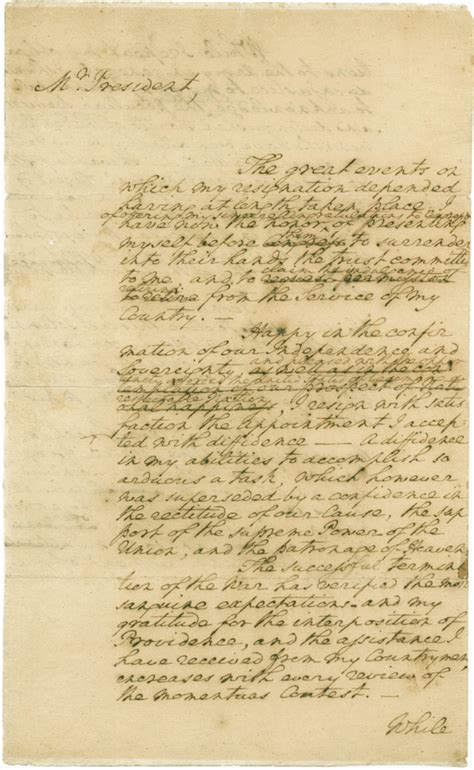 Mr. President,
The great events on
which my resignation depended
having at length taken place, I
offering my sincere congratulations to Congress
have now the honor of presenting
them
myself before Congress to surrender
into their hands the trust committed
claim the indulgence of
to me, and to request permission
retiring
to retire from the Service of my
Country. —
Happy in the confir
mation of our Independence and
Sovereignty, as well as in the
nation
, I resign with satis
faction the Appointment I accep
ted with diffidence — A diffidence
in my abilities to accomplish so
arduous a task, which however
was superseded by a confidence in
the rectitude of our Cause, the sup
port of the supreme Power of the
Union, and the patronage of Heaven
The successful termina
tion of the War has verified the most
sanguine expectations – and my
gratitude for the interposition of
Providence, and the assistance I
have received from my Countrymen,
increases with every review of
the momentuas Contest. —
While